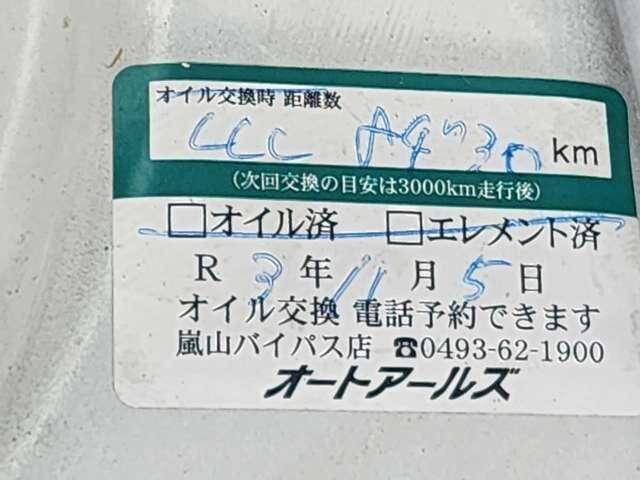 オイル交換時 距離数
LLC -30 km
(次回交換の目安は3000km走行後)
□オイル済 □エレメント済
R 3 年 11 月 5 日
オイル交換 電話予約できます
嵐山バイパス店 ☎0493-62-1900
オートアールズ